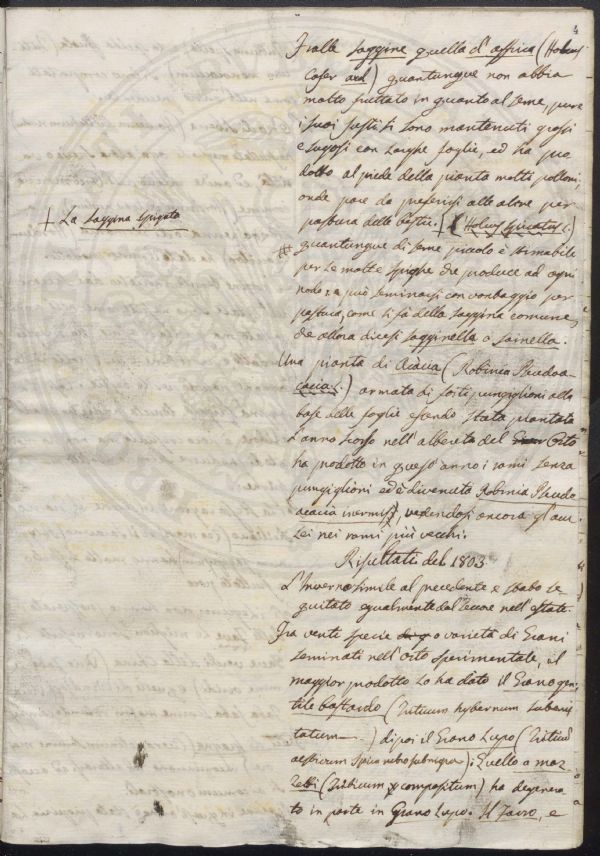 4
Fralle Saggine quella d'affrica (Holcus
Cafer ard) quantunque non abbia
molto fruttato in quanto al seme, pure
i suoi fusti si sono mantenuti grossi
e sugosi con larghe foglie, ed ha pro
dotto al piede della pianta molti polloni,
onde pare da preferirsi alle altre per
pastura delle bestie. + (L'Holcus spicatus L.)
+ La Saggina spigata
quantunque di seme piccolo è stimabile
per le molte spighe che produce ad ogni
nodo: e può seminarsi con vantaggio per
pastura, come si fà della saggina comune,
che allora dicesi Sagginella o Sainella.
Una pianta di Acacia (Robinia Pseudoa-
cacia L.) armata di forti pungiglioni alla
base delle foglie essendo stata piantata
l'anno scorso nell'albereta del Orto
ha prodotto in quest'anno i rami senza
pungiglioni ed è divenuta Robinia Pseudo
acacia inermis, vedendosi ancora gl'acu
lei nei rami più vecchi.
Risultati del 1803
L'Inverno simile al precedente e stato se-
guitato egualmente dal seccore nell'estate.
Fra venti specie o varietà di Grani
seminati nell'orto sperimentale, il
maggior prodotto lo ha dato il Grano gen-
tile bastardo (Triticum hybernum subaris
tatum) dipoi il Grano Lupo (Triticum
aestivum spica rubro subnigra); Quello a maz
zetti (Triticum compositum) ha degenera
to in parte in Grano Lupo: Il Farro, e